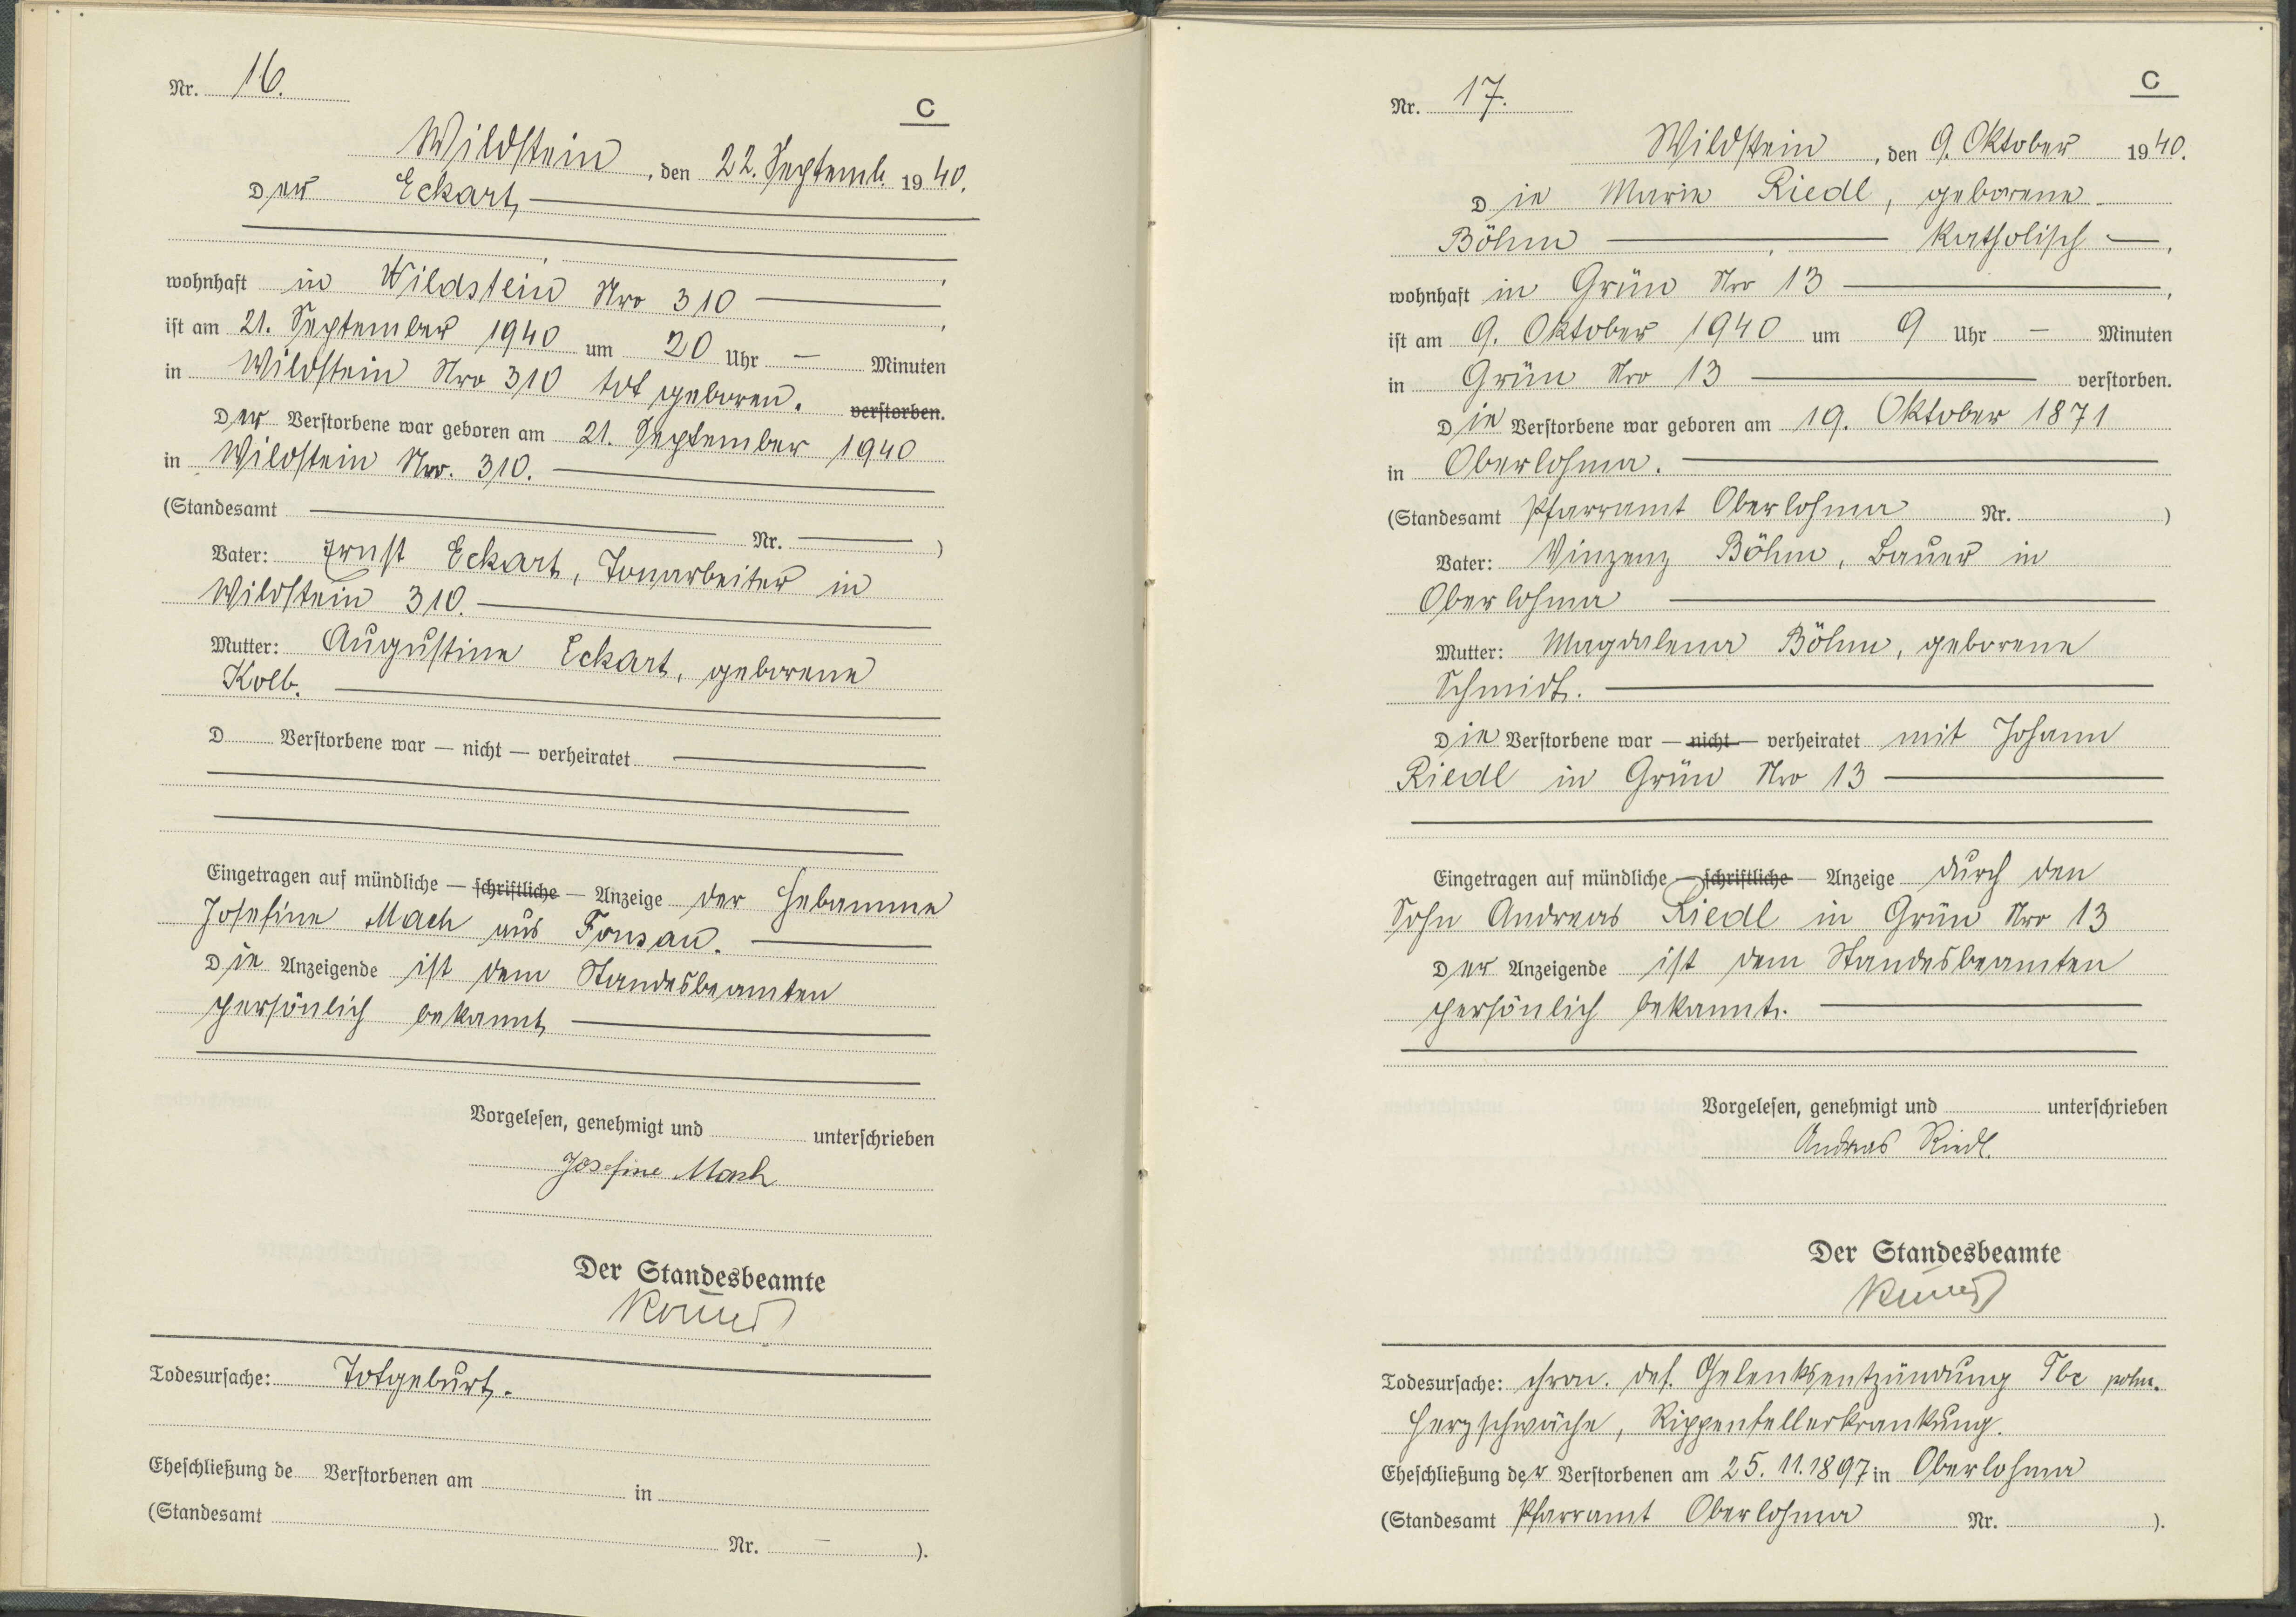 Nr. 16.
C
Wildstein, den 22. Septemb. 1940.
Der Eckart,
wohnhaft in Wildstein Nro 310
ist am 21. September 1940 um 20 Uhr — Minuten
in Wildstein Nro 310 tot geboren. verstorben.
Der Verstorbene war geboren am 21. September 1940
in Wildstein Nro. 310.
(Standesamt — Nr. — )
Vater: Ernst Eckart, Tonarbeiter in
Wildstein 310.
Mutter: Augustine Eckart, geborene
Kolb.
D Verstorbene war — nicht — verheiratet
Eingetragen auf mündliche — schriftliche — Anzeige der Hebamme
Josefine Mach aus Fonsau.
Die Anzeigende ist dem Standesbeamten
persönlich bekannt
Vorgelesen, genehmigt und unterschrieben
Josefine Mach
Der Standesbeamte
Todesursache: Totgeburt.
Eheschließung de Verstorbenen am in
(Standesamt Nr. — ).
Nr. 17.
C
Wildstein, den 9. Oktober 1940.
Die Marie Riedl, geborene
Böhm —, — katholisch —,
wohnhaft in Grün Nro 13 —,
ist am 9. Oktober 1940 um 9 Uhr — Minuten
in Grün Nro 13 — verstorben.
Die Verstorbene war geboren am 19. Oktober 1871
in Oberlohma.
(Standesamt Pfarramt Oberlohma Nr. )
Vater: Vinzenz Böhm, Bauer in
Oberlohma
Mutter: Magdalena Böhm, geborene
Schmidt.
Die Verstorbene war — nicht — verheiratet mit Johann
Riedl in Grün Nro 13
Eingetragen auf mündliche — schriftliche — Anzeige durch den
Sohn Andreas Riedl in Grün Nro 13
Der Anzeigende ist dem Standesbeamten
persönlich bekannt.
Vorgelesen, genehmigt und unterschrieben
Andreas Riedl.
Der Standesbeamte
Todesursache: chron. def. Gelenksentzündung Tbc
Herzschwäche, Rippenfellerkrankung.
Eheschließung der Verstorbenen am 25. 11. 1897 in Oberlohma
(Standesamt Pfarramt Oberlohma Nr. ).